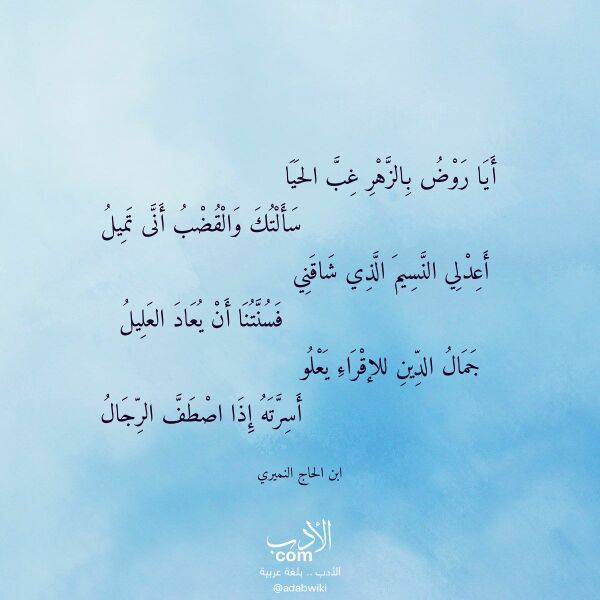 أَيَا رَوْضُ بِالزَّهْرِ غِبَّ الحَيَا
سَأَلْتُكَ وَالْقُضْبُ أَنَّى تَمِيلُ
أَعِدْلِي النَّسِيمَ الَّذِي شَاقَنِي
فَسُنَّتُنَا أَنْ يُعَادَ العَلِيلُ
جَمَالُ الدِّينِ للإقْرَاءِ يَعْلُو
أَسِرَّتَهُ إِذَا اصْطَفَّ الرِّجَالُ
ابن الحاج النميري
الأدب
com
الأدب .. بلغة عربية
@adabwiki